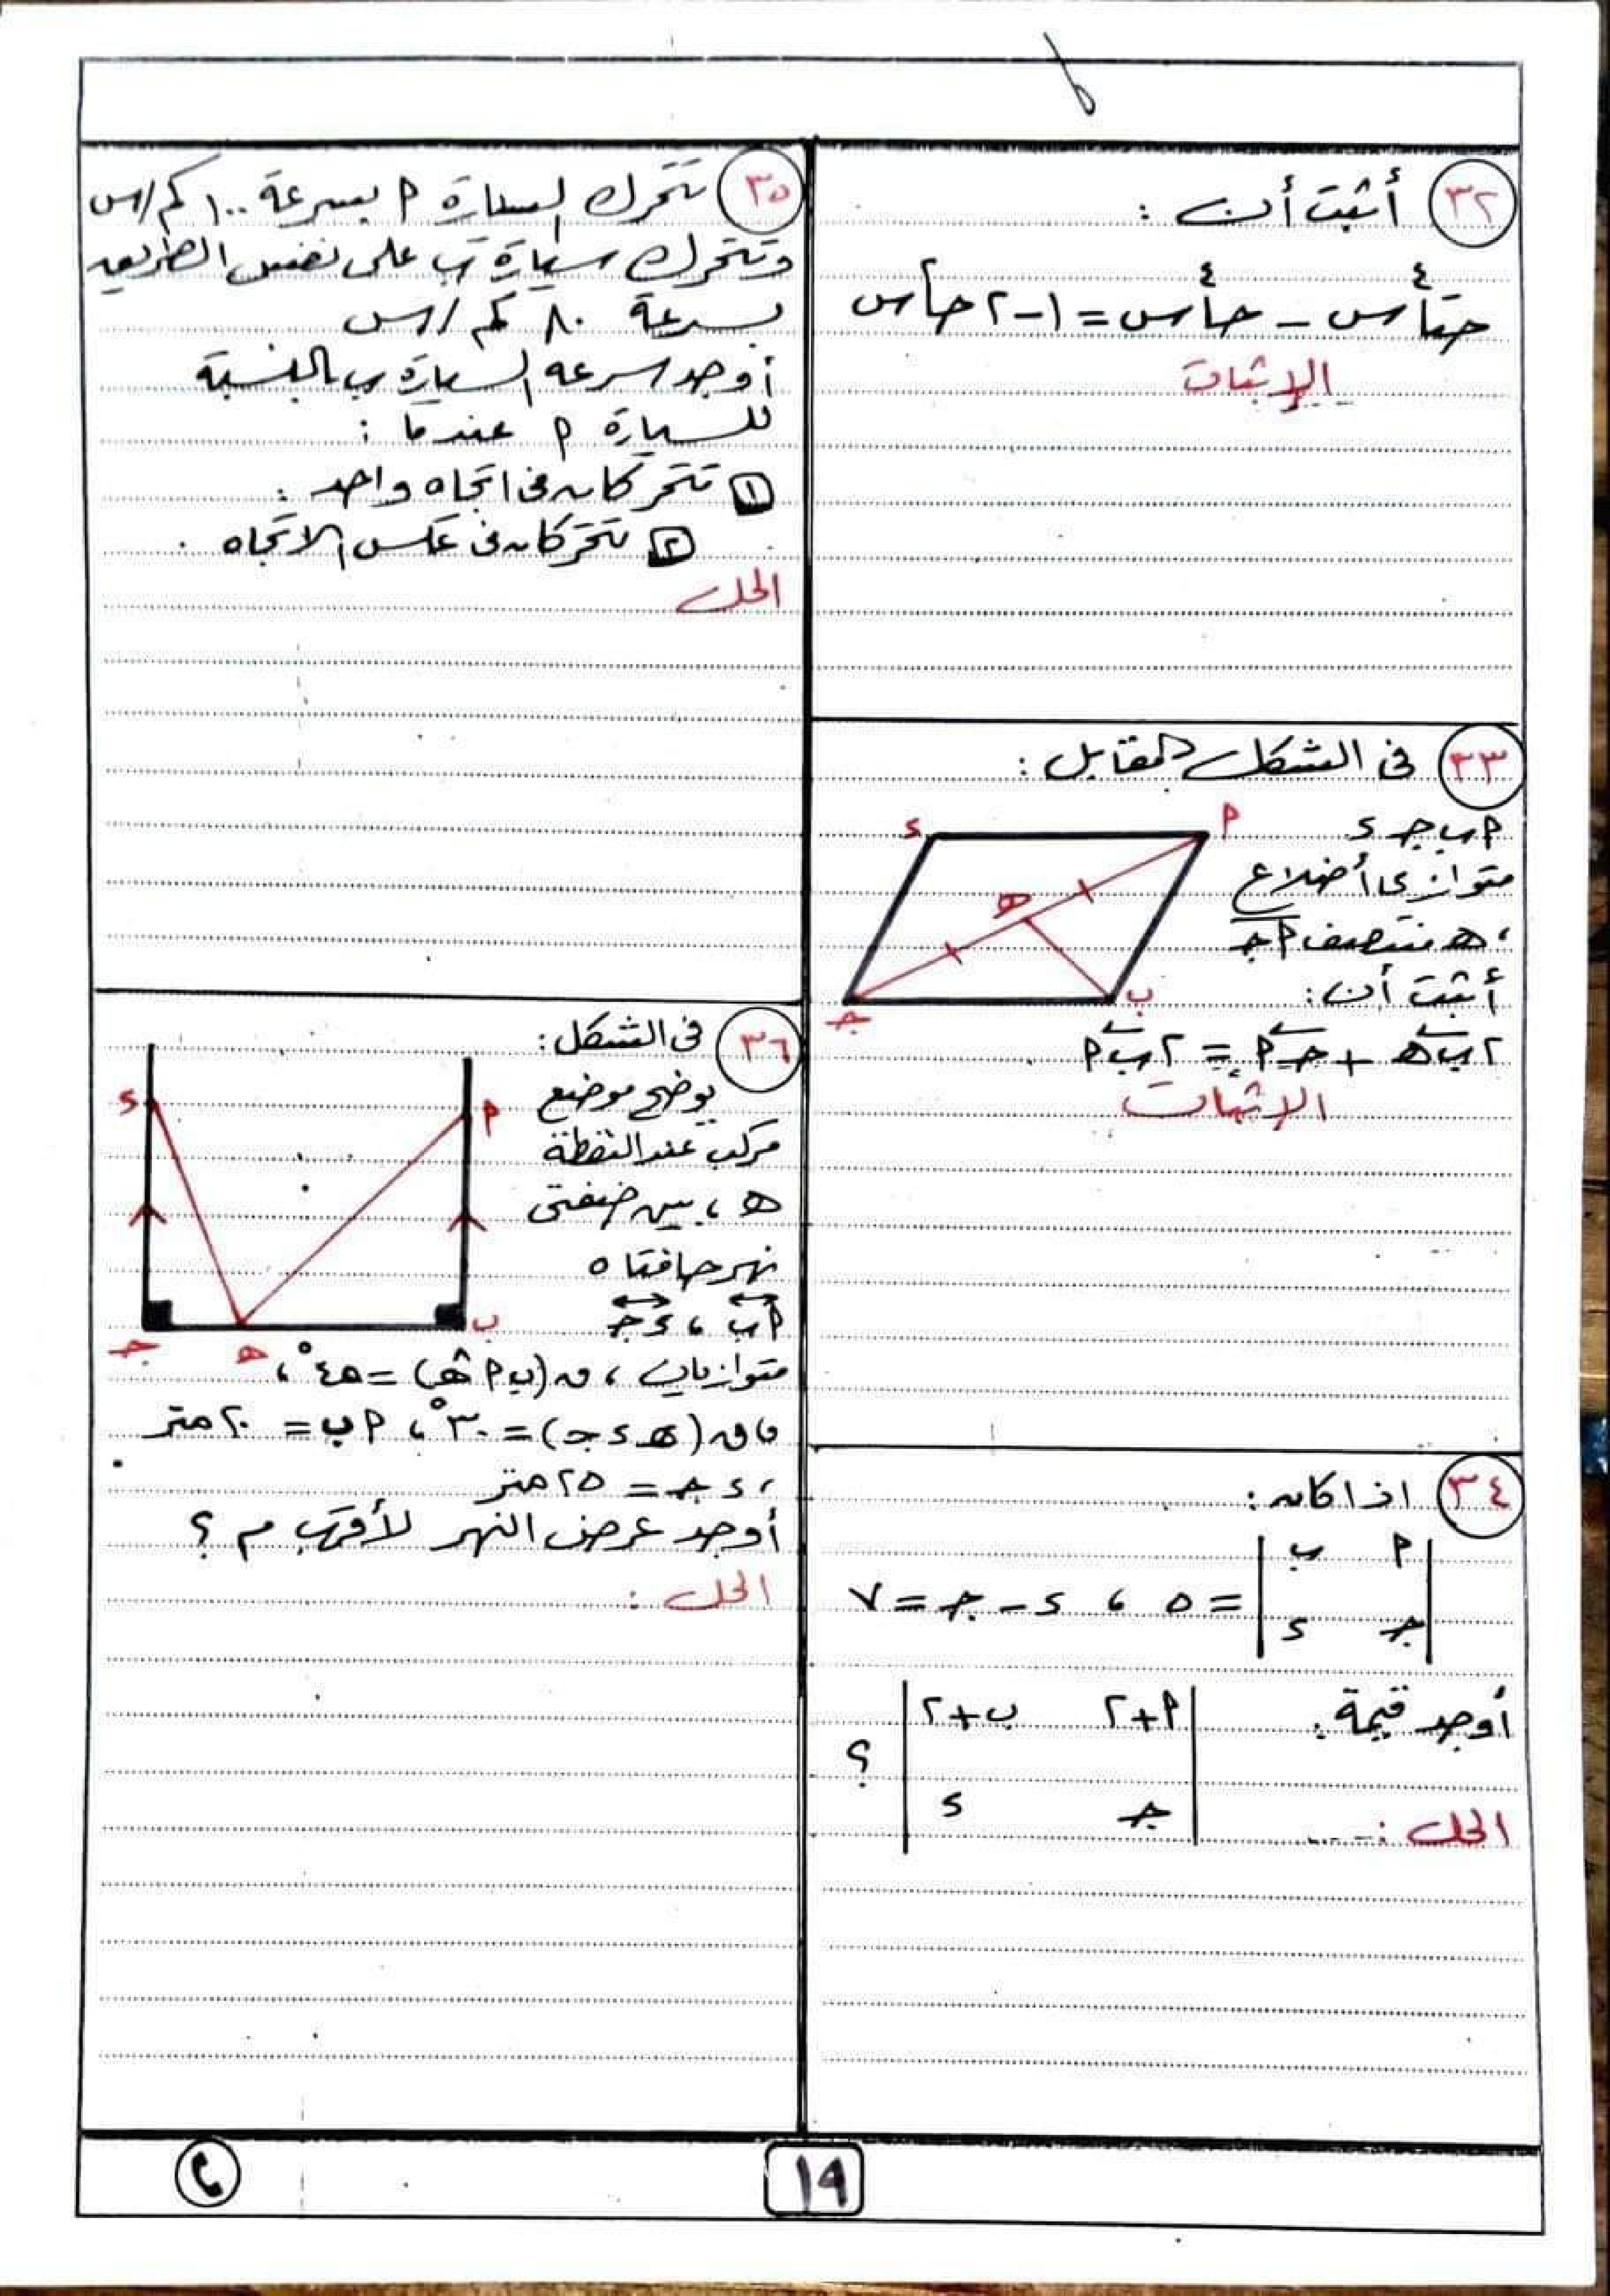 ٣٢ أثبت أن :
حتا٤س - حا٤س = ١ - ٢حا٢س
الإثبات
٣٣ فى الشكل المقابل :
أ ب جـ ء
متوازى أضلاع
، هـ منتصف أجـ
أثبت أن :
٢ب هـ + جـ أ = ٢ب أ
الإثبات
ء
أ
هـ
ب
جـ
٣٤ اذا كان :
| أ ب |
| جـ ء | = ٥ ، ء - جـ = ٧
أوجد قيمة :
| أ+٢ ب+٢ |
| جـ ء | ؟
الحل :
٣٥ تتحرك السيارة أ بسرعة ١٠٠ كم/س
وتتحرك سيارة ب على نفس الطريق
بسرعة ٨٠ كم/س
أوجد سرعه السيارة ب بالنسبة
للسيارة أ عندما :
١ تتحركان فى اتجاه واحد :
٢ تتحركان فى عكس الاتجاه .
الحل
٣٦ فى الشكل :
يوضح موضع
مركب عند النقطة
هـ ، بين ضفتى
نهر حافتاه
أب ، ء جـ
متوازيان ، ق(ب أ هـ) = ٤٥° ،
، ق(هـ ء جـ) = ٣٠° ، أ ب = ٢٠ متر
، ء جـ = ٢٥ متر
أوجد عرض النهر لأقرب م ؟
الحل :
ء
أ
جـ
هـ
ب
١٩